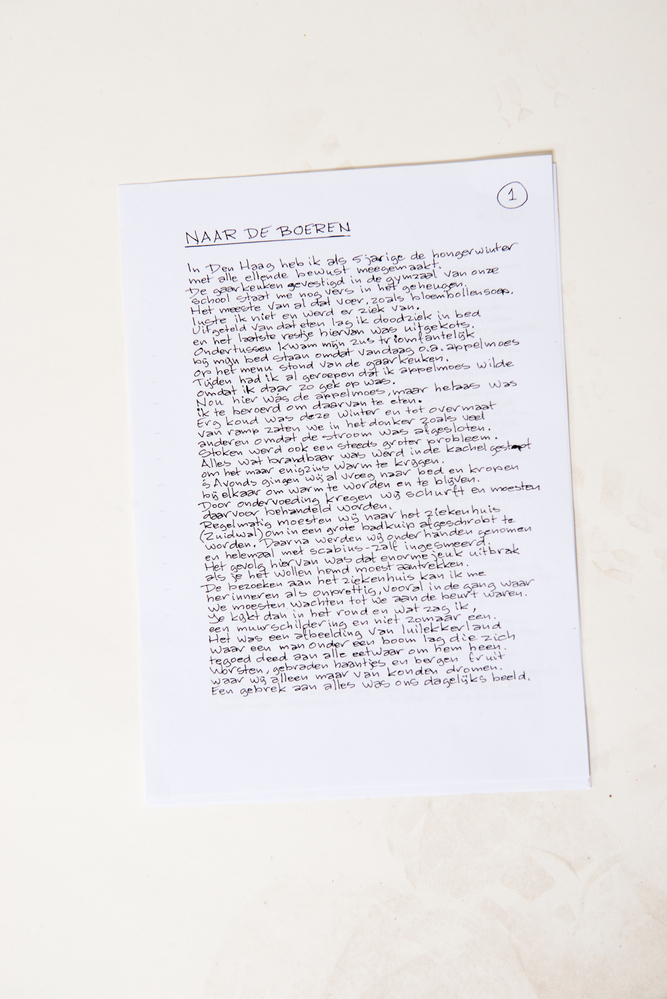 1
NAAR DE BOEREN
In Den Haag heb ik als 5 jarige de hongerwinter
met alle ellende bewust meegemaakt.
De gaarkeuken gevestigd in de gymzaal van onze
school staat me nog vers in het geheugen.
Het meeste van al dat voer, zoals bloembollensoep,
lustte ik niet en werd er ziek van.
Uitgeteld van dat eten lag ik doodziek in bed
en het laatste restje hiervan was uitgekots.
Ondertussen kwam mijn zus triomfantelijk
bij mijn bed staan omdat vandaag o.a. appelmoes
op het menu stond van de gaarkeuken.
Tijden had ik al geroepen dat ik appelmoes wilde
omdat ik daar zo gek op was.
Nou hier was de appelmoes, maar helaas was
ik te beroerd om daarvan te eten.
Erg koud was deze winter en tot overmaat
van ramp zaten we in het donker zoals veel
anderen omdat de stroom was afgesloten.
Stoken werd ook een steeds groter probleem.
Alles wat brandbaar was werd in de kachel gestopt
om het maar enigzins warm te krijgen.
's Avonds gingen wij al vroeg naar bed en kropen
bij elkaar om warm te worden en te blijven.
Door ondervoeding kregen wij schurft en moesten
daarvoor behandeld worden.
Regelmatig moesten wij naar het ziekenhuis
(Zuidwal) om in een grote badkuip afgeschrobt te
worden. Daarna werden wij onder handen genomen
en helemaal met scabius-zalf ingesmeerd.
Het gevolg hiervan was dat enorme jeuk uitbrak
als je het wollen hemd moest aantrekken.
De bezoeken aan het ziekenhuis kan ik me
herinneren als onprettig, vooral in de gang waar
we moesten wachten tot we aan de beurt waren.
Je kijkt dan in het rond en wat zag ik,
een muurschildering en niet zomaar een.
Het was een afbeelding van luilekkerland
waar een man onder een boom lag die zich
tegoed deed aan alle eetwaar om hem heen.
Worsten, gebraden haantjes en bergen fruit
waar wij alleen maar van konden dromen.
Een gebrek aan alles was ons dagelijks beeld.